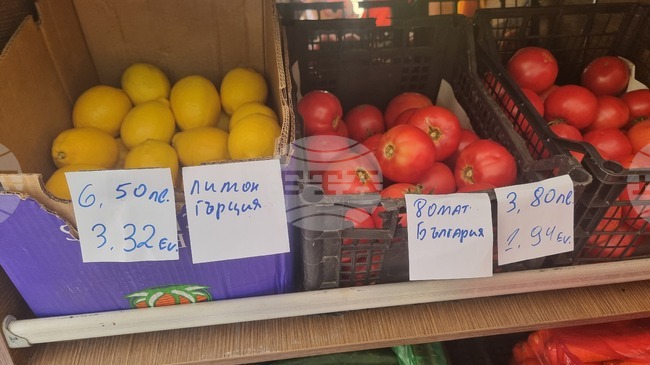 6,50лв.
3.32 Eu.
Лимон
Гърция
Домат.
България
3,80лв.
1.94 Eu.